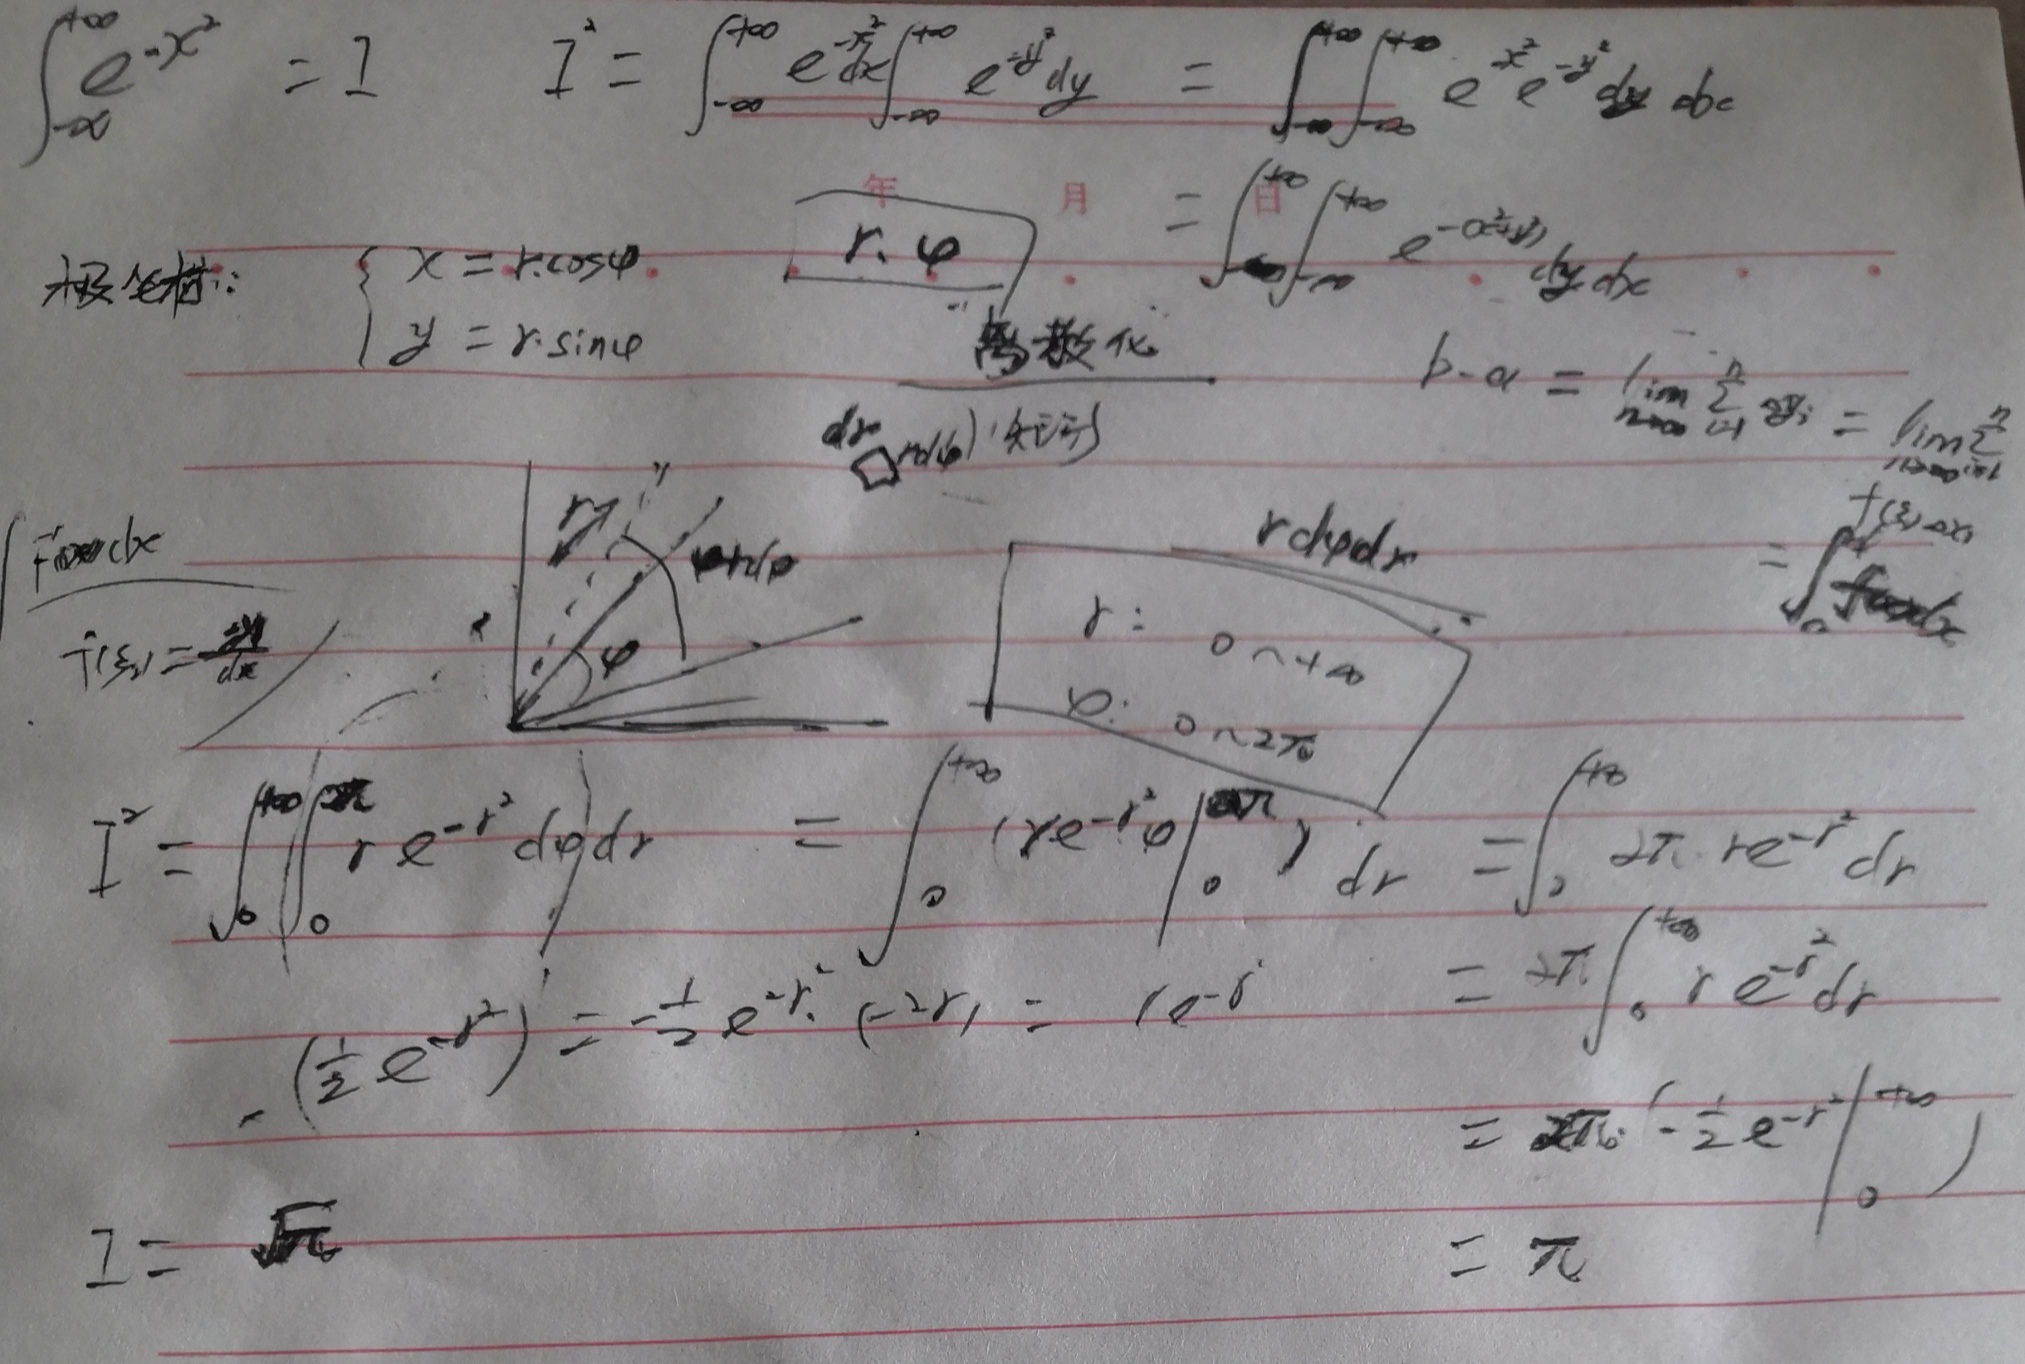 ∫_{-∞}^{+∞} e^{-x²} = I    I² = ∫_{-∞}^{+∞} e^{-x²}dx ∫_{-∞}^{+∞} e^{-y²}dy = ∫_{-∞}^{+∞}∫_{-∞}^{+∞} e^{-x²}e^{-y²}dy dx
年 月 日
= ∫_{-∞}^{+∞}∫_{-∞}^{+∞} e^{-(x²+y²)}dy dx
极坐标: { x = r·cosφ
y = r·sinφ
r. φ
离散化
b-a = lim_{n→∞} Σ_{i=1}^{n} = lim_{n→∞} Σ_{i=1}^{n} f(ξ_i)Δx_i
dr rdφ 矩形
= ∫ f(x)dx
r
φ
rdφdr
r: 0~+∞
φ: 0~2π
I² = ∫_0^{+∞}(∫_0^{2π} r e^{-r²} dφ)dr = ∫_0^{+∞} (re^{-r²}φ|_0^{2π}) dr = ∫_0^{+∞} 2π·re^{-r²}dr
= 2π∫_0^{+∞} r e^{-r²}dr
-(½e^{-r²})' = -½e^{-r²}·(-2r) = re^{-r²}
= 2π·(-½e^{-r²}|_0^{+∞})
= π
I = √π